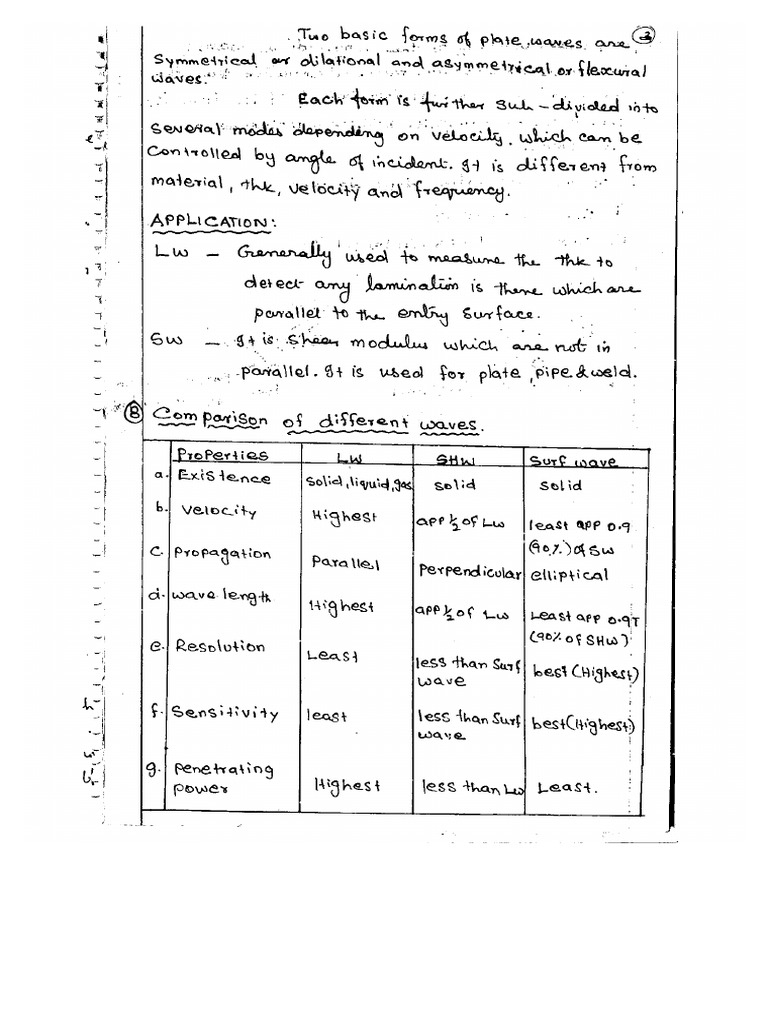 Two basic forms of plate waves are ③
Symmetrical or dilational and asymmetrical or flexural
waves.
Each form is further Sub-divided into
Several modes depending on velocity, which can be
Controlled by angle of incident. It is different from
material, thk, velocity and frequency.
APPLICATION:
LW - Generally used to measure the thk to
detect any lamination is there which are
parallel to the entry surface.
SW - It is Shear modulus which are not in
parallel. It is used for plate, pipe & weld.
Ⓑ Comparison of different waves.
Properties LW SHW Surf wave
a. Existence Solid, liquid, gas solid solid
b. Velocity Highest app ½ of LW least app 0.9
(90%) of SW
c. Propagation Parallel perpendicular elliptical
d. wave length Highest app ½ of LW Least app 0.9T
(90% of SHW)
e. Resolution Least less than Surf best (Highest)
wave
f. Sensitivity least less than Surf best (Highest)
wave
g. penetrating Highest less than LW Least.
power